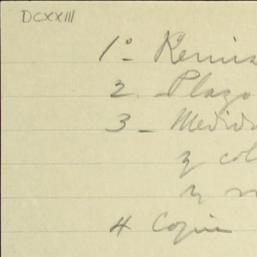 DCXXIII
1º - Remis
2. Plazo
3 - Medid
y col
y
4 Copia